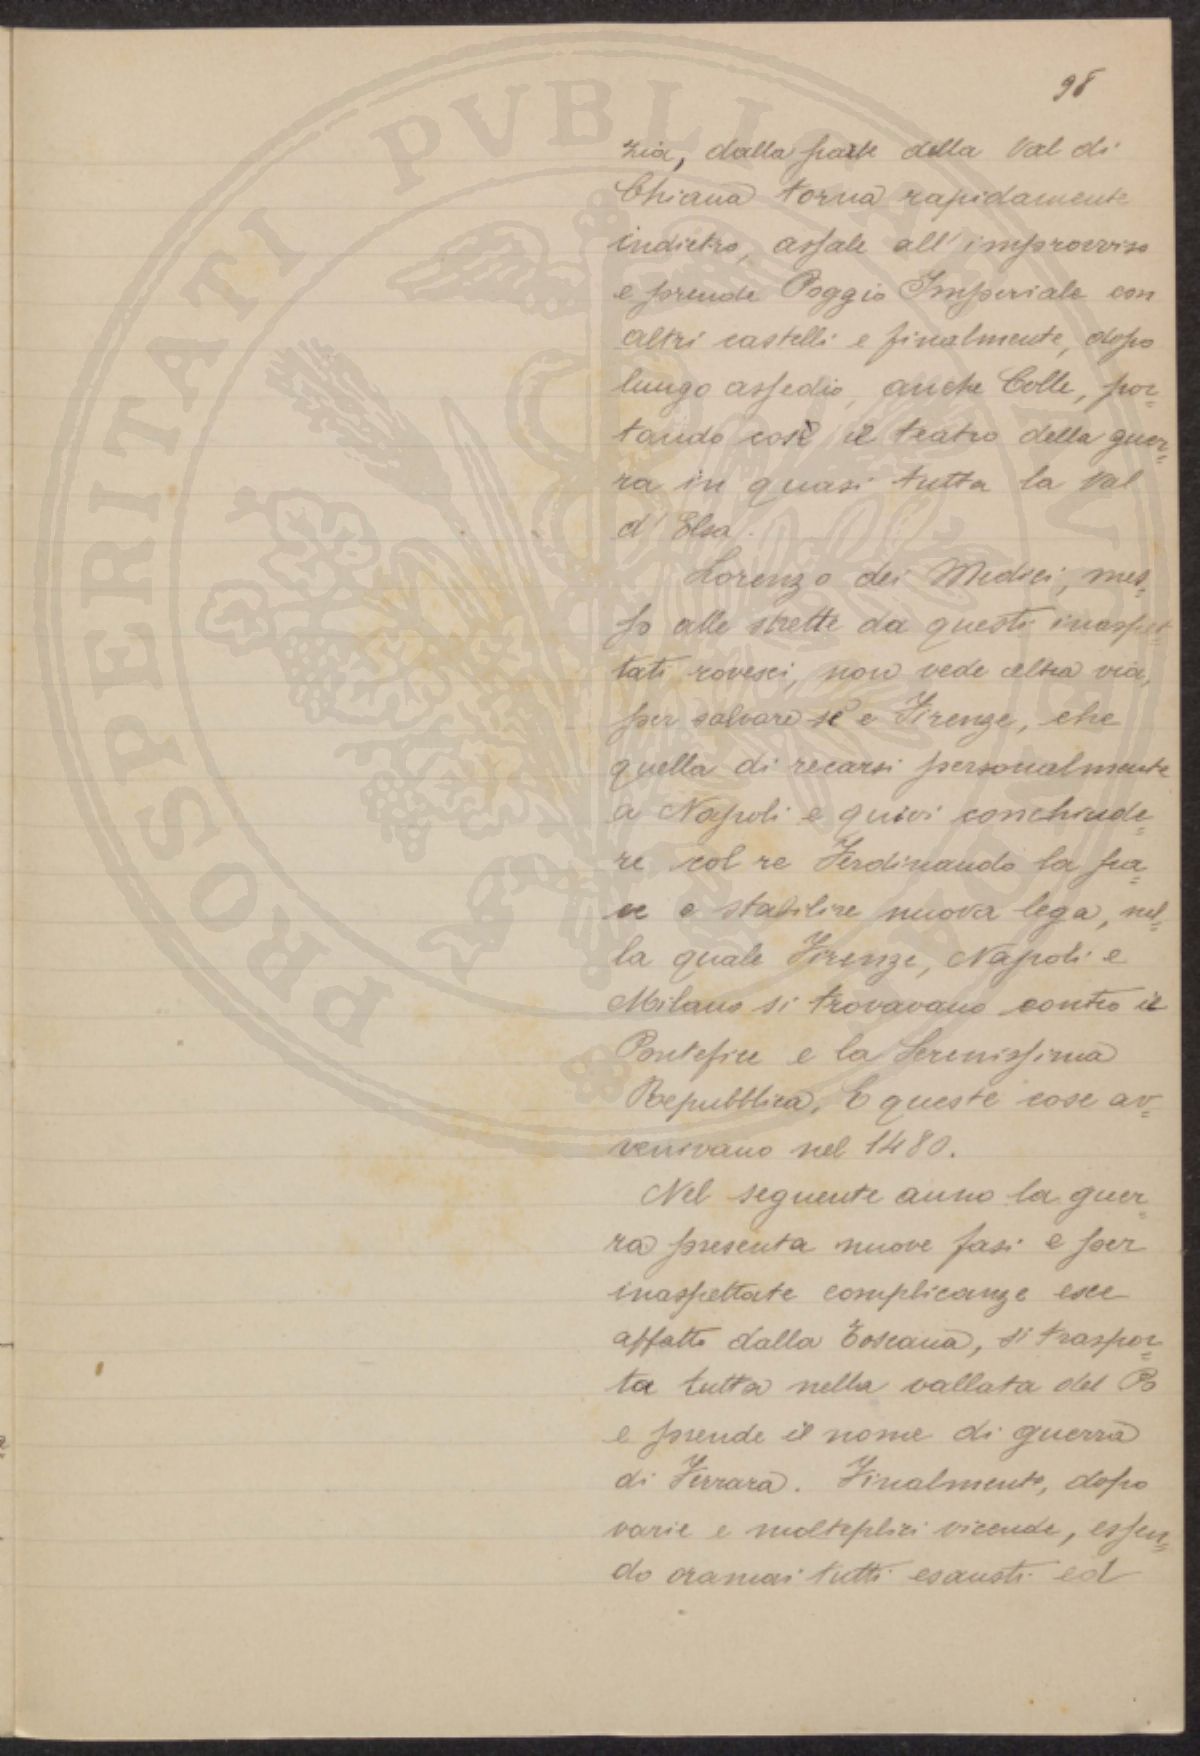 98
zia, dalla parte della Val di
Chiana torna rapidamente
indietro, assale all'improvviso
e prende Poggio Imperiale con
altri castelli e finalmente, dopo
lungo assedio, anche Colle, por=
tando così il teatro della guer=
ra in quasi tutta la Val
d'Elsa.
Lorenzo dei Medici, mes=
so alle strette da questi inaspet=
tati rovesci, non vede altra via,
per salvare sè e Firenze, che
quella di recarsi personalmente
a Napoli e quivi conchiude=
re col re Ferdinando la pa=
ce e stabilire nuova lega, nel=
la quale Firenze, Napoli e
Milano si trovavano contro il
Pontefice e la Serenissima
Repubblica. E queste cose av=
venivano nel 1480.
Nel seguente anno la guer=
ra presenta nuove fasi e per
inaspettate complicanze esce
affatto dalla Toscana, si traspor=
ta tutta nella vallata del Po
e prende il nome di guerra
di Ferrara. Finalmente, dopo
varie e molteplici vicende, essen=
do oramai tutti esausti ed
PROSPERITATI PVBLICAE AVGENDAE